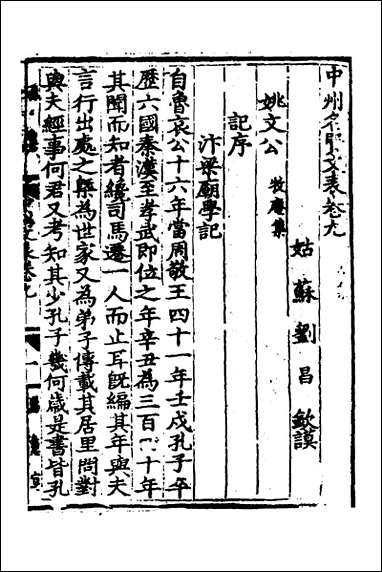 中州名賢文表卷九
姑蘇劉昌欽謨
姚文公 牧庵集
記序
汴梁廟學記
自魯哀公十六年當周敬王四十一年壬戌孔子卒
歷六國秦漢至孝武即位之年辛丑為三百四十年
其聞而知者纔司馬遷一人而止耳旣編其年與夫
言行出處之槩為世家又為弟子傳載其居里問對
與夫經事何君又考知其少孔子幾何歲是書皆孔